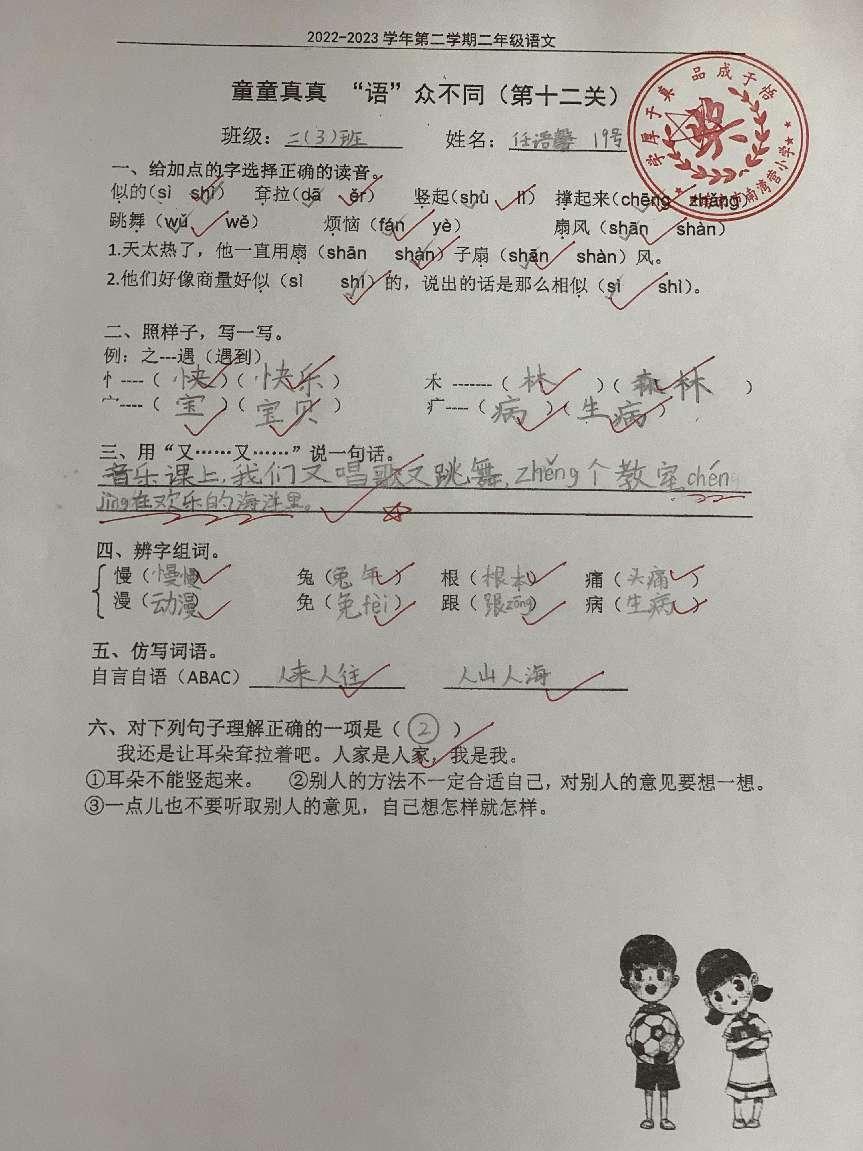 2022-2023 学年第二学期二年级语文
童童真真 “语”众不同（第十二关）
班级：二（3）班 姓名：任语馨 19号
学厚于真 品成于悟
奖
南湾营小学
一、给加点的字选择正确的读音。
似的（sì shì） 耷拉（dā ěr） 竖起（shù lì） 撑起来（chēng zhǎng）
跳舞（wǔ wě） 烦恼（fán yè） 扇风（shān shàn）
1.天太热了，他一直用扇（shān shàn）子扇（shān shàn）风。
2.他们好像商量好似（sì shì）的，说出的话是那么相似（sì shì）。
二、照样子，写一写。
例：之---遇（遇到）
忄----（快）（快乐） 木 -------（林）（森林）
宀----（宝）（宝贝） 疒----（病）（生病）
三、用“又……又……”说一句话。
音乐课上,我们又唱歌又跳舞,zhěng个教室chén
jìng在欢乐的海洋里。
四、辨字组词。
慢（慢慢） 兔（兔年） 根（根本） 痛（头痛）
漫（动漫） 免（免fèi） 跟（跟zōng） 病（生病）
五、仿写词语。
自言自语（ABAC） 人来人往 人山人海
六、对下列句子理解正确的一项是（②）
我还是让耳朵耷拉着吧。人家是人家，我是我。
①耳朵不能竖起来。 ②别人的方法不一定合适自己，对别人的意见要想一想。
③一点儿也不要听取别人的意见，自己想怎样就怎样。